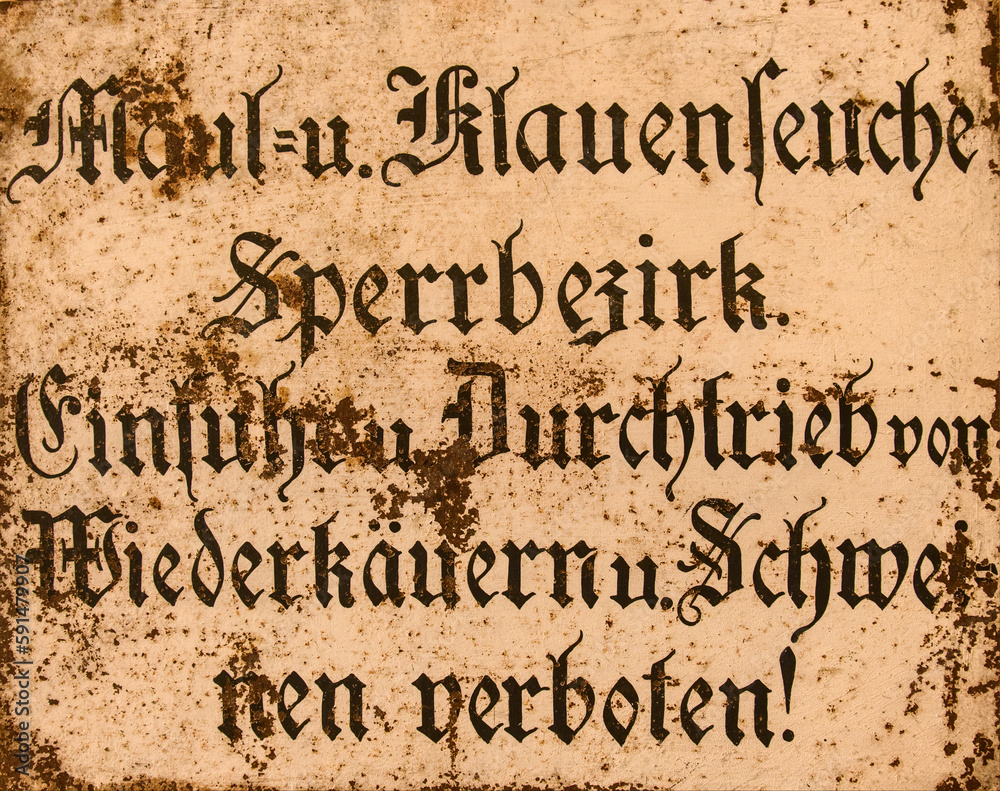 Maul=u. Klauenſeuche
Sperrbezirk.
Einfuhr u Durchtrieb von
Wiederkäuern u. Schwei-
nen verboten!
Adobe Stock | #591479907